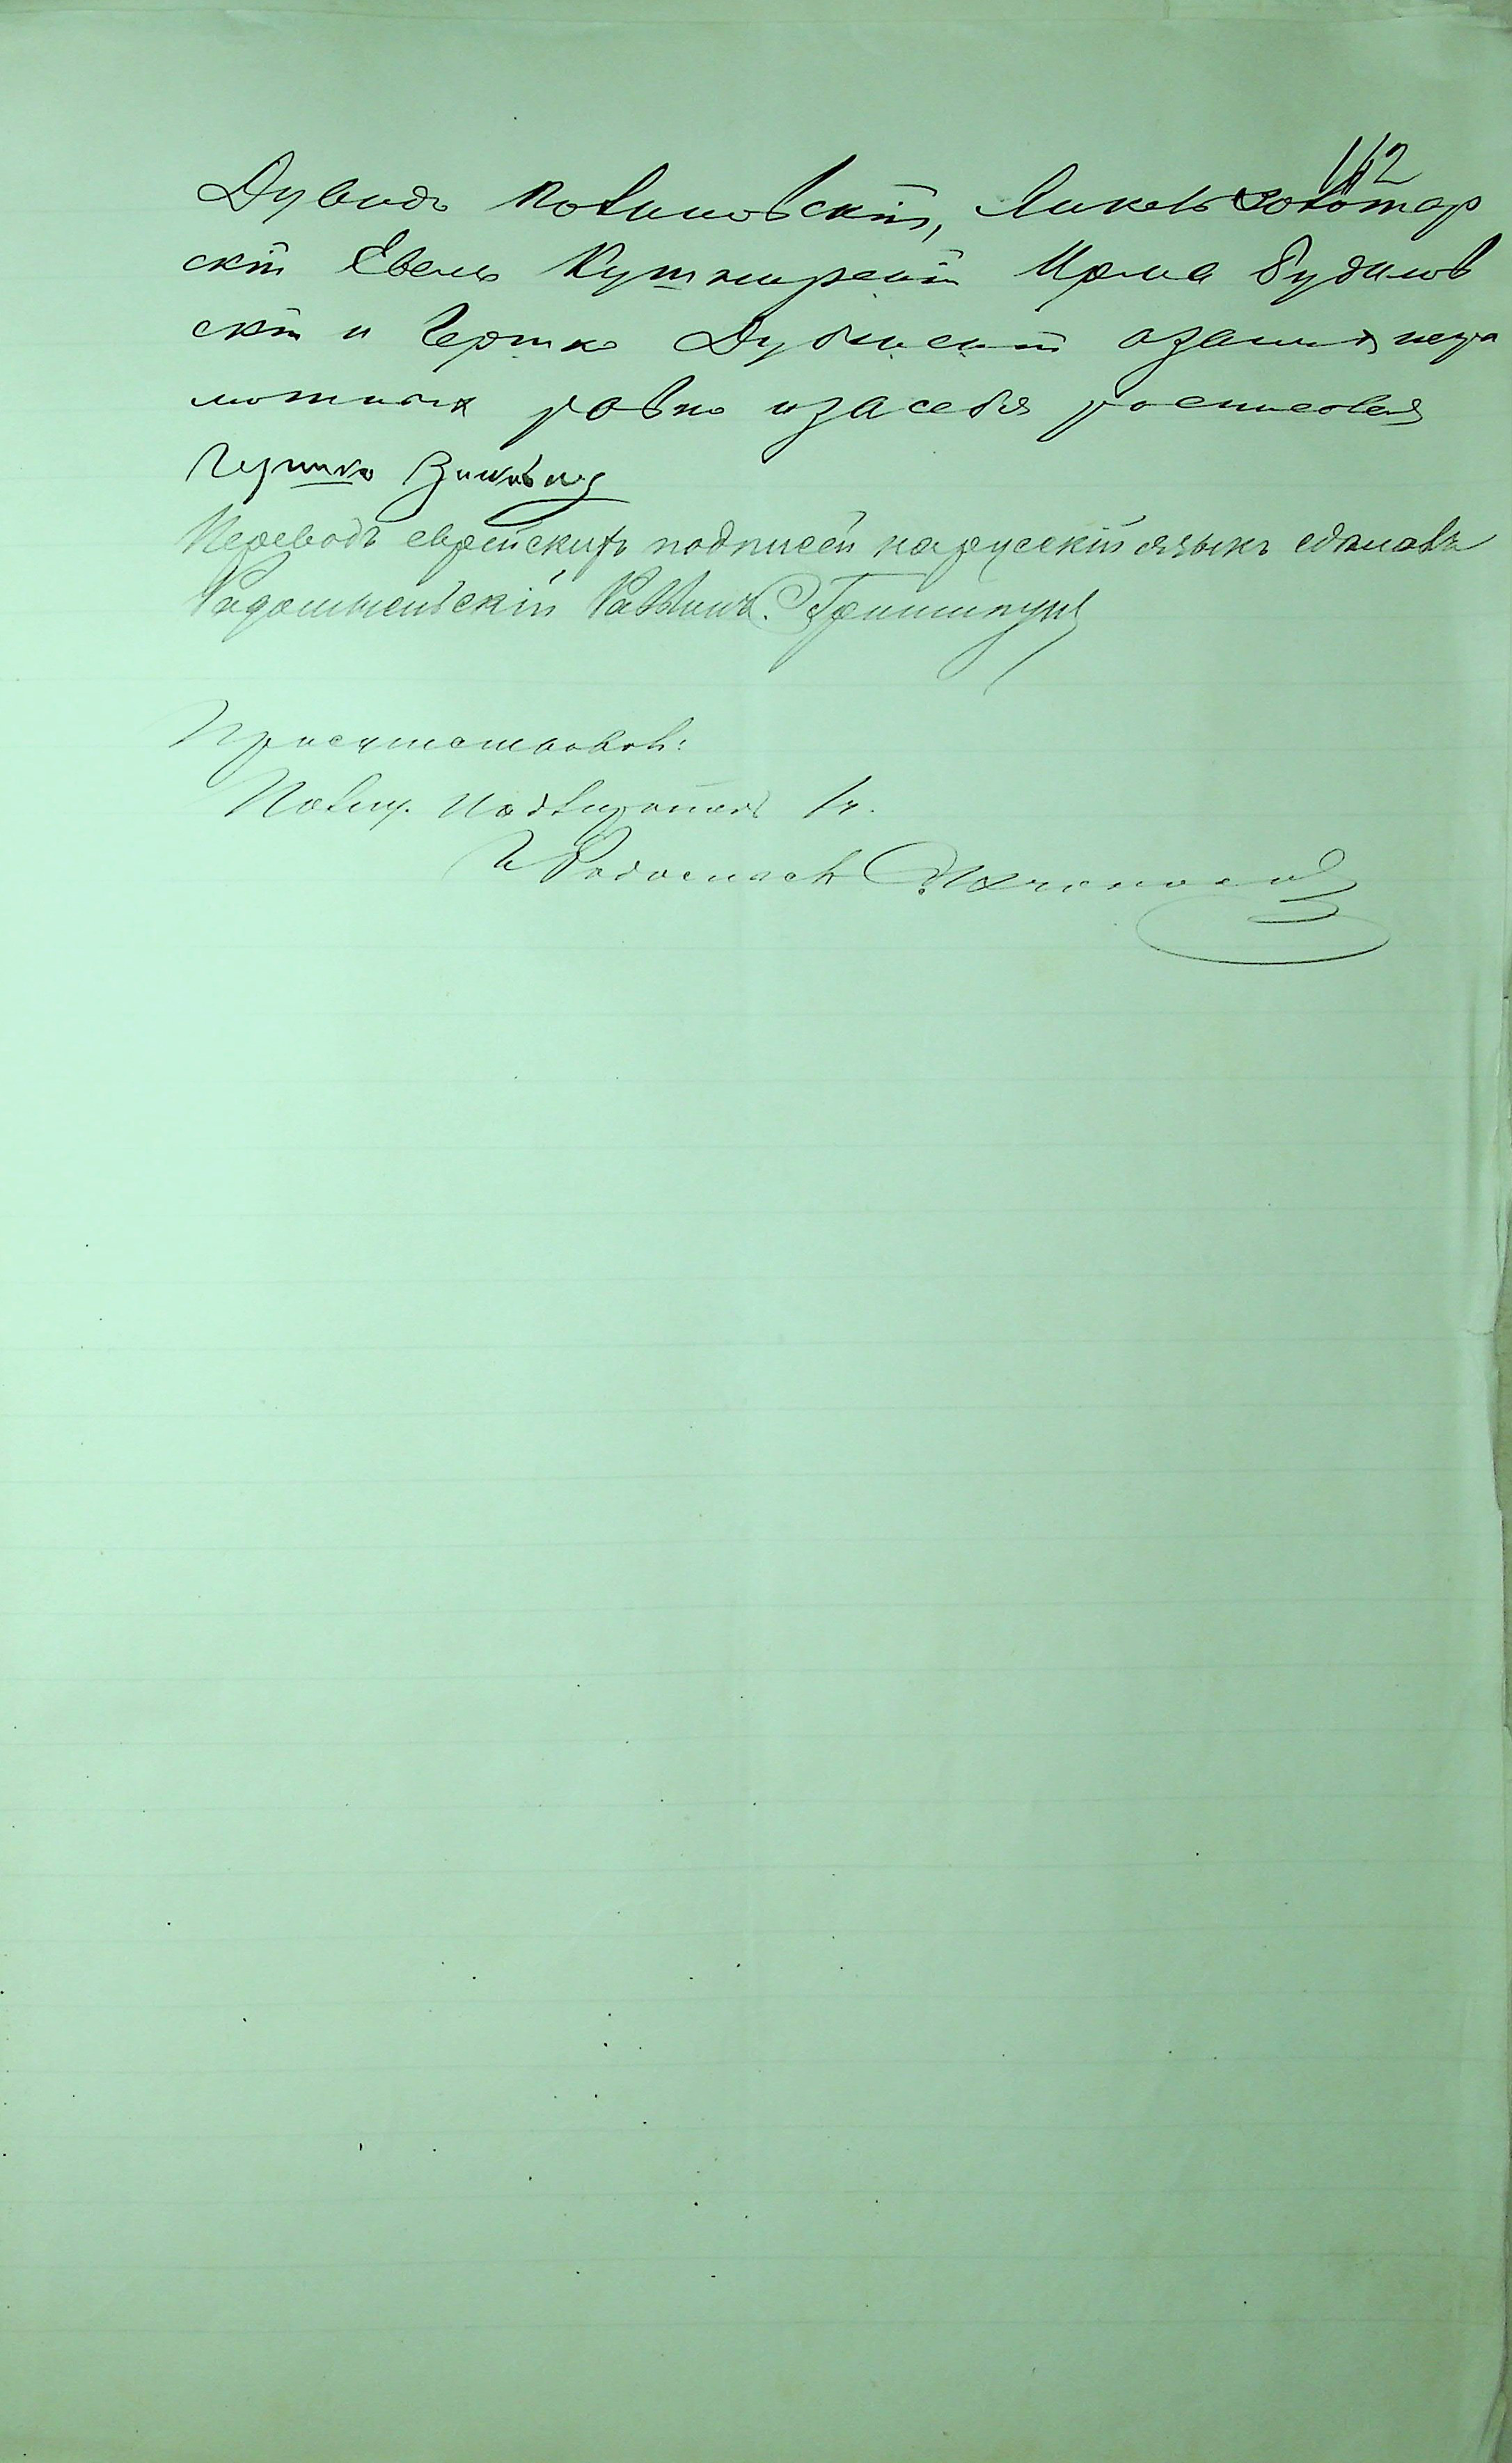 112
Дувидъ Новиновскій, Янкель Золотар
скій Евель Кушнирскій Ирма Будилов
скій и Гершко Дубинскій а за них негра
мотных ровно и за себя росписовся
Гершко
Переводъ еврейскихъ подписей на русскій языкъ сдѣлалъ
Радомысльскій Раввинъ. Гриншпунъ
Присутствовалъ:
Полиц. Надзиратель